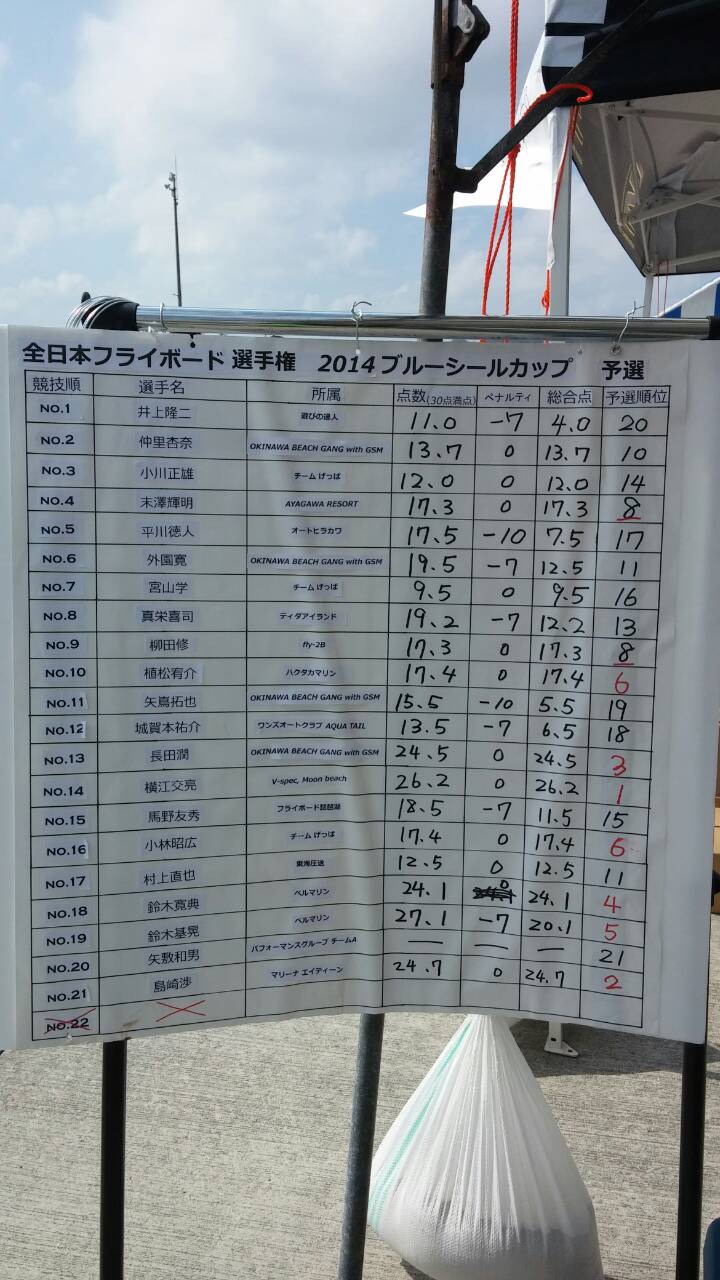 全日本フライボード 選手権 2014ブルーシールカップ 予選
競技順 選手名 所属 点数(30点満点) ペナルティ 総合点 予選順位
NO.1 井上隆二 遊びの達人 11.0 -7 4.0 20
NO.2 仲里杏奈 OKINAWA BEACH GANG with GSM 13.7 0 13.7 10
NO.3 小川正雄 チーム げっぱ 12.0 0 12.0 14
NO.4 末澤輝明 AYAGAWA RESORT 17.3 0 17.3 8
NO.5 平川徳人 オートヒラカワ 17.5 -10 7.5 17
NO.6 外園寛 OKINAWA BEACH GANG with GSM 19.5 -7 12.5 11
NO.7 宮山学 チーム げっぱ 9.5 0 9.5 16
NO.8 真栄喜司 ティダアイランド 19.2 -7 12.2 13
NO.9 柳田修 fly-2B 17.3 0 17.3 8
NO.10 植松宥介 ハクタカマリン 17.4 0 17.4 6
NO.11 矢嶌拓也 OKINAWA BEACH GANG with GSM 15.5 -10 5.5 19
NO.12 城賀本祐介 ワンズオートクラブ AQUA TAIL 13.5 -7 6.5 18
NO.13 長田潤 OKINAWA BEACH GANG with GSM 24.5 0 24.5 3
NO.14 横江交亮 V-spec, Moon beach 26.2 0 26.2 1
NO.15 馬野友秀 フライボード琵琶湖 18.5 -7 11.5 15
NO.16 小林昭広 チーム げっぱ 17.4 0 17.4 6
NO.17 村上直也 東海圧送 12.5 0 12.5 11
NO.18 鈴木寛典 ベルマリン 24.1 0 24.1 4
NO.19 鈴木基晃 ベルマリン 27.1 -7 20.1 5
NO.20 矢敷和男 パフォーマンスグループ チームA — — — 21
NO.21 島崎渉 マリーナ エイディーン 24.7 0 24.7 2
NO.22